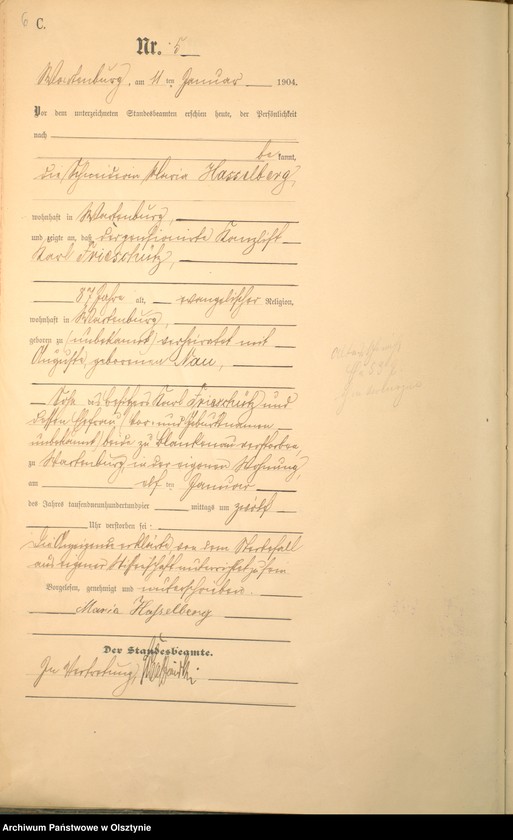 6 C.
Nr. 5
Wartenburg, am 11 ten Januar 1904.
Vor dem unterzeichneten Standesbeamten erschien heute, der Persönlichkeit
nach
be kannt,
die Maria Hasselberg,
wohnhaft in Wartenburg,
und zeigte an, daß der pensionirte Kanzlist
Karl
87 Jahre alt, evangelischer Religion,
wohnhaft in Wartenburg,
geboren zu (unbekannt) verheiratet mit
Auguste, geborenen Nau,
Sohn des Besitzers Karl und
dessen Ehefrau (Vor- und Geburtsnamen
unbekannt) beide zu Blankenau verstorben,
zu Wartenburg in der eigenen Wohnung,
am elf ten Januar
des Jahres tausendneunhundertundvier mittags um zwölf
Uhr verstorben sei:
Die Anzeigende erklärte von dem Sterbefall
aus eigener Wissenschaft unterrichtet zu sein.
Vorgelesen, genehmigt und unterschrieben.
Maria Hasselberg
Der Standesbeamte.
In Vertretung
Archiwum Państwowe w Olsztynie